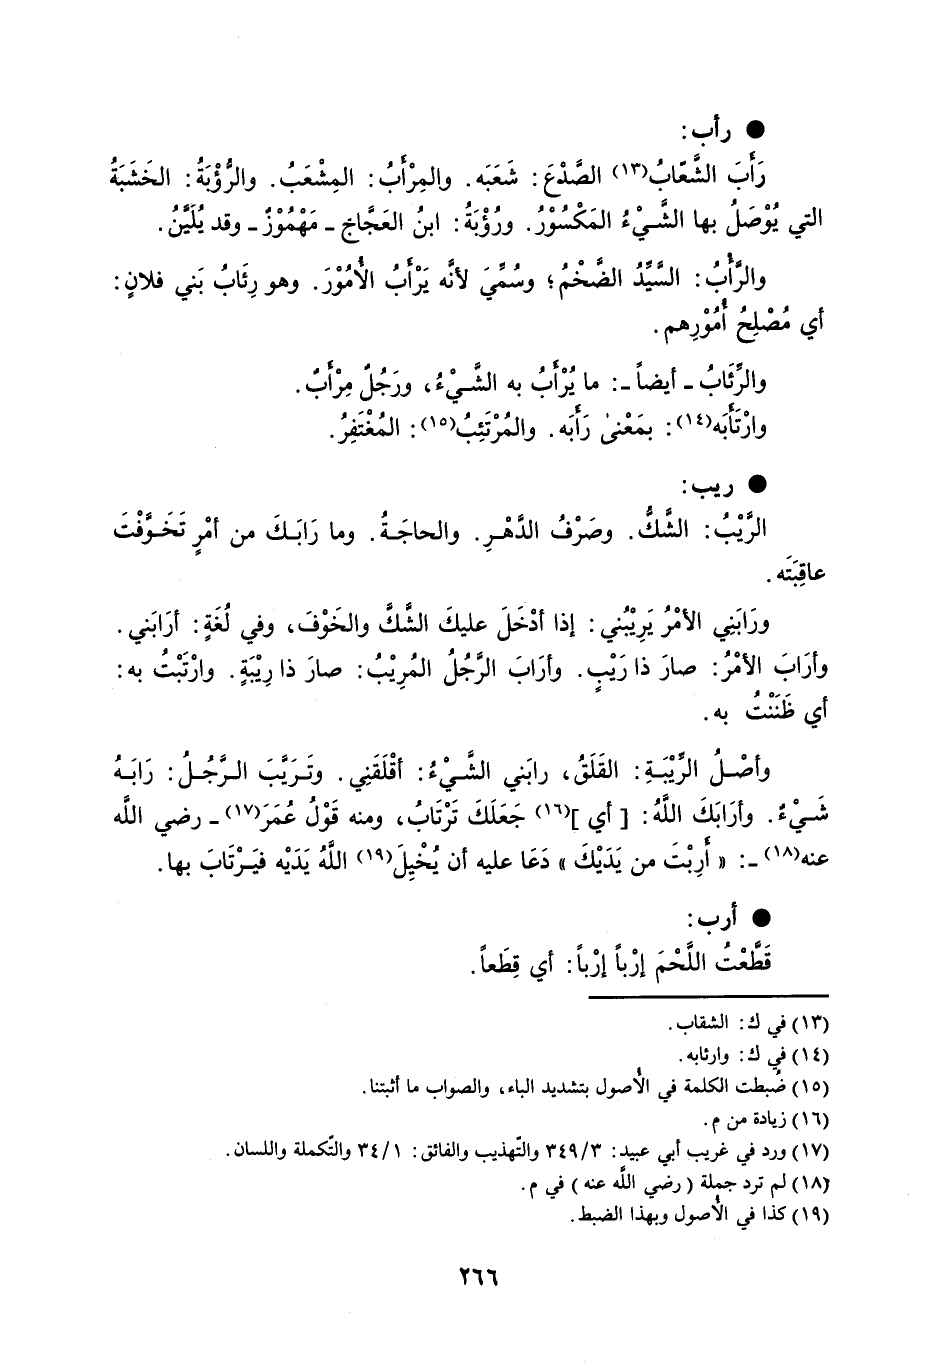 ● رأب :
رَأَبَ الشَّعّابُ(١٣) الصَّدْعَ : شَعَبَه . والمِرْأَبُ : المِشْعَبُ . والرُّؤْبَةُ : الخَشَبَةُ
التي يُوْصَلُ بها الشَّيْءُ المَكْسُوْرُ . ورُؤْبَةُ : ابنُ العَجَّاج ـ مَهْمُوْزٌ ـ وقد يُلَيَّنُ .
والرَّأْبُ : السَّيِّدُ الضَّخْمُ ؛ وسُمِّيَ لأنَّه يَرْأَبُ الأُمُوْرَ . وهو رِئَابُ بَني فلانٍ :
أي مُصْلِحُ أُمُوْرِهم .
والرِّئَابُ ـ أيضاً ـ : ما يُرْأَبُ به الشَّيْءُ ، ورَجُلٌ مِرْأَبٌ .
وارْتَأَبَه(١٤) : بمَعْنىٰ رَأَبَه . والمُرْتَئِبُ(١٥) : المُغْتَفِرُ .
● ريب :
الرَّيْبُ : الشَّكُّ . وصَرْفُ الدَّهْرِ . والحاجَةُ . وما رَابَكَ من أمْرٍ تَخَوَّفْتَ
عاقِبَتَه .
ورَابَنِي الأمْرُ يَرِيْبُني : إذا أدْخَلَ عليكَ الشَّكَّ والخَوْفَ ، وفي لُغَةٍ : أرَابَني .
وأرَابَ الأمْرُ : صارَ ذا رَيْبٍ . وأرَابَ الرَّجُلُ المُرِيْبُ : صارَ ذا رِيْبَةٍ . وارْتَبْتُ به :
أي ظَنَنْتُ به .
وأصْلُ الرِّيْبَةِ : القَلَقُ ، رابَني الشَّيْءُ : أقْلَقَنِي . وتَرَيَّبَ الرَّجُلُ : رَابَهُ
شَيْءٌ . وأرَابَكَ اللَّهُ : [ أي ](١٦) جَعَلَكَ تَرْتَابُ ، ومنه قَوْلُ عُمَرَ(١٧) ـ رضي اللَّه
عنه(١٨) ـ : « أَرِبْتَ من يَدَيْكَ » دَعَا عليه أن يُخْيِلَ(١٩) اللَّهُ يَدَيْه فيَرْتَابَ بها .
● أرب :
قَطَّعْتُ اللَّحْمَ إرْباً إرْباً : أي قِطَعاً .
(١٣) في ك : الشقاب .
(١٤) في ك : وارئابه .
(١٥) ضُبطت الكلمة في الأُصول بتشديد الباء ، والصواب ما أثبتنا .
(١٦) زيادة من م .
(١٧) ورد في غريب أبي عبيد : ٣٤٩/٣ والتّهذيب والفائق : ٣٤/١ والتّكملة واللسان .
(١٨) لم ترد جملة ( رضي اللَّه عنه ) في م .
(١٩) كذا في الأُصول وبهذا الضبط .
٢٦٦